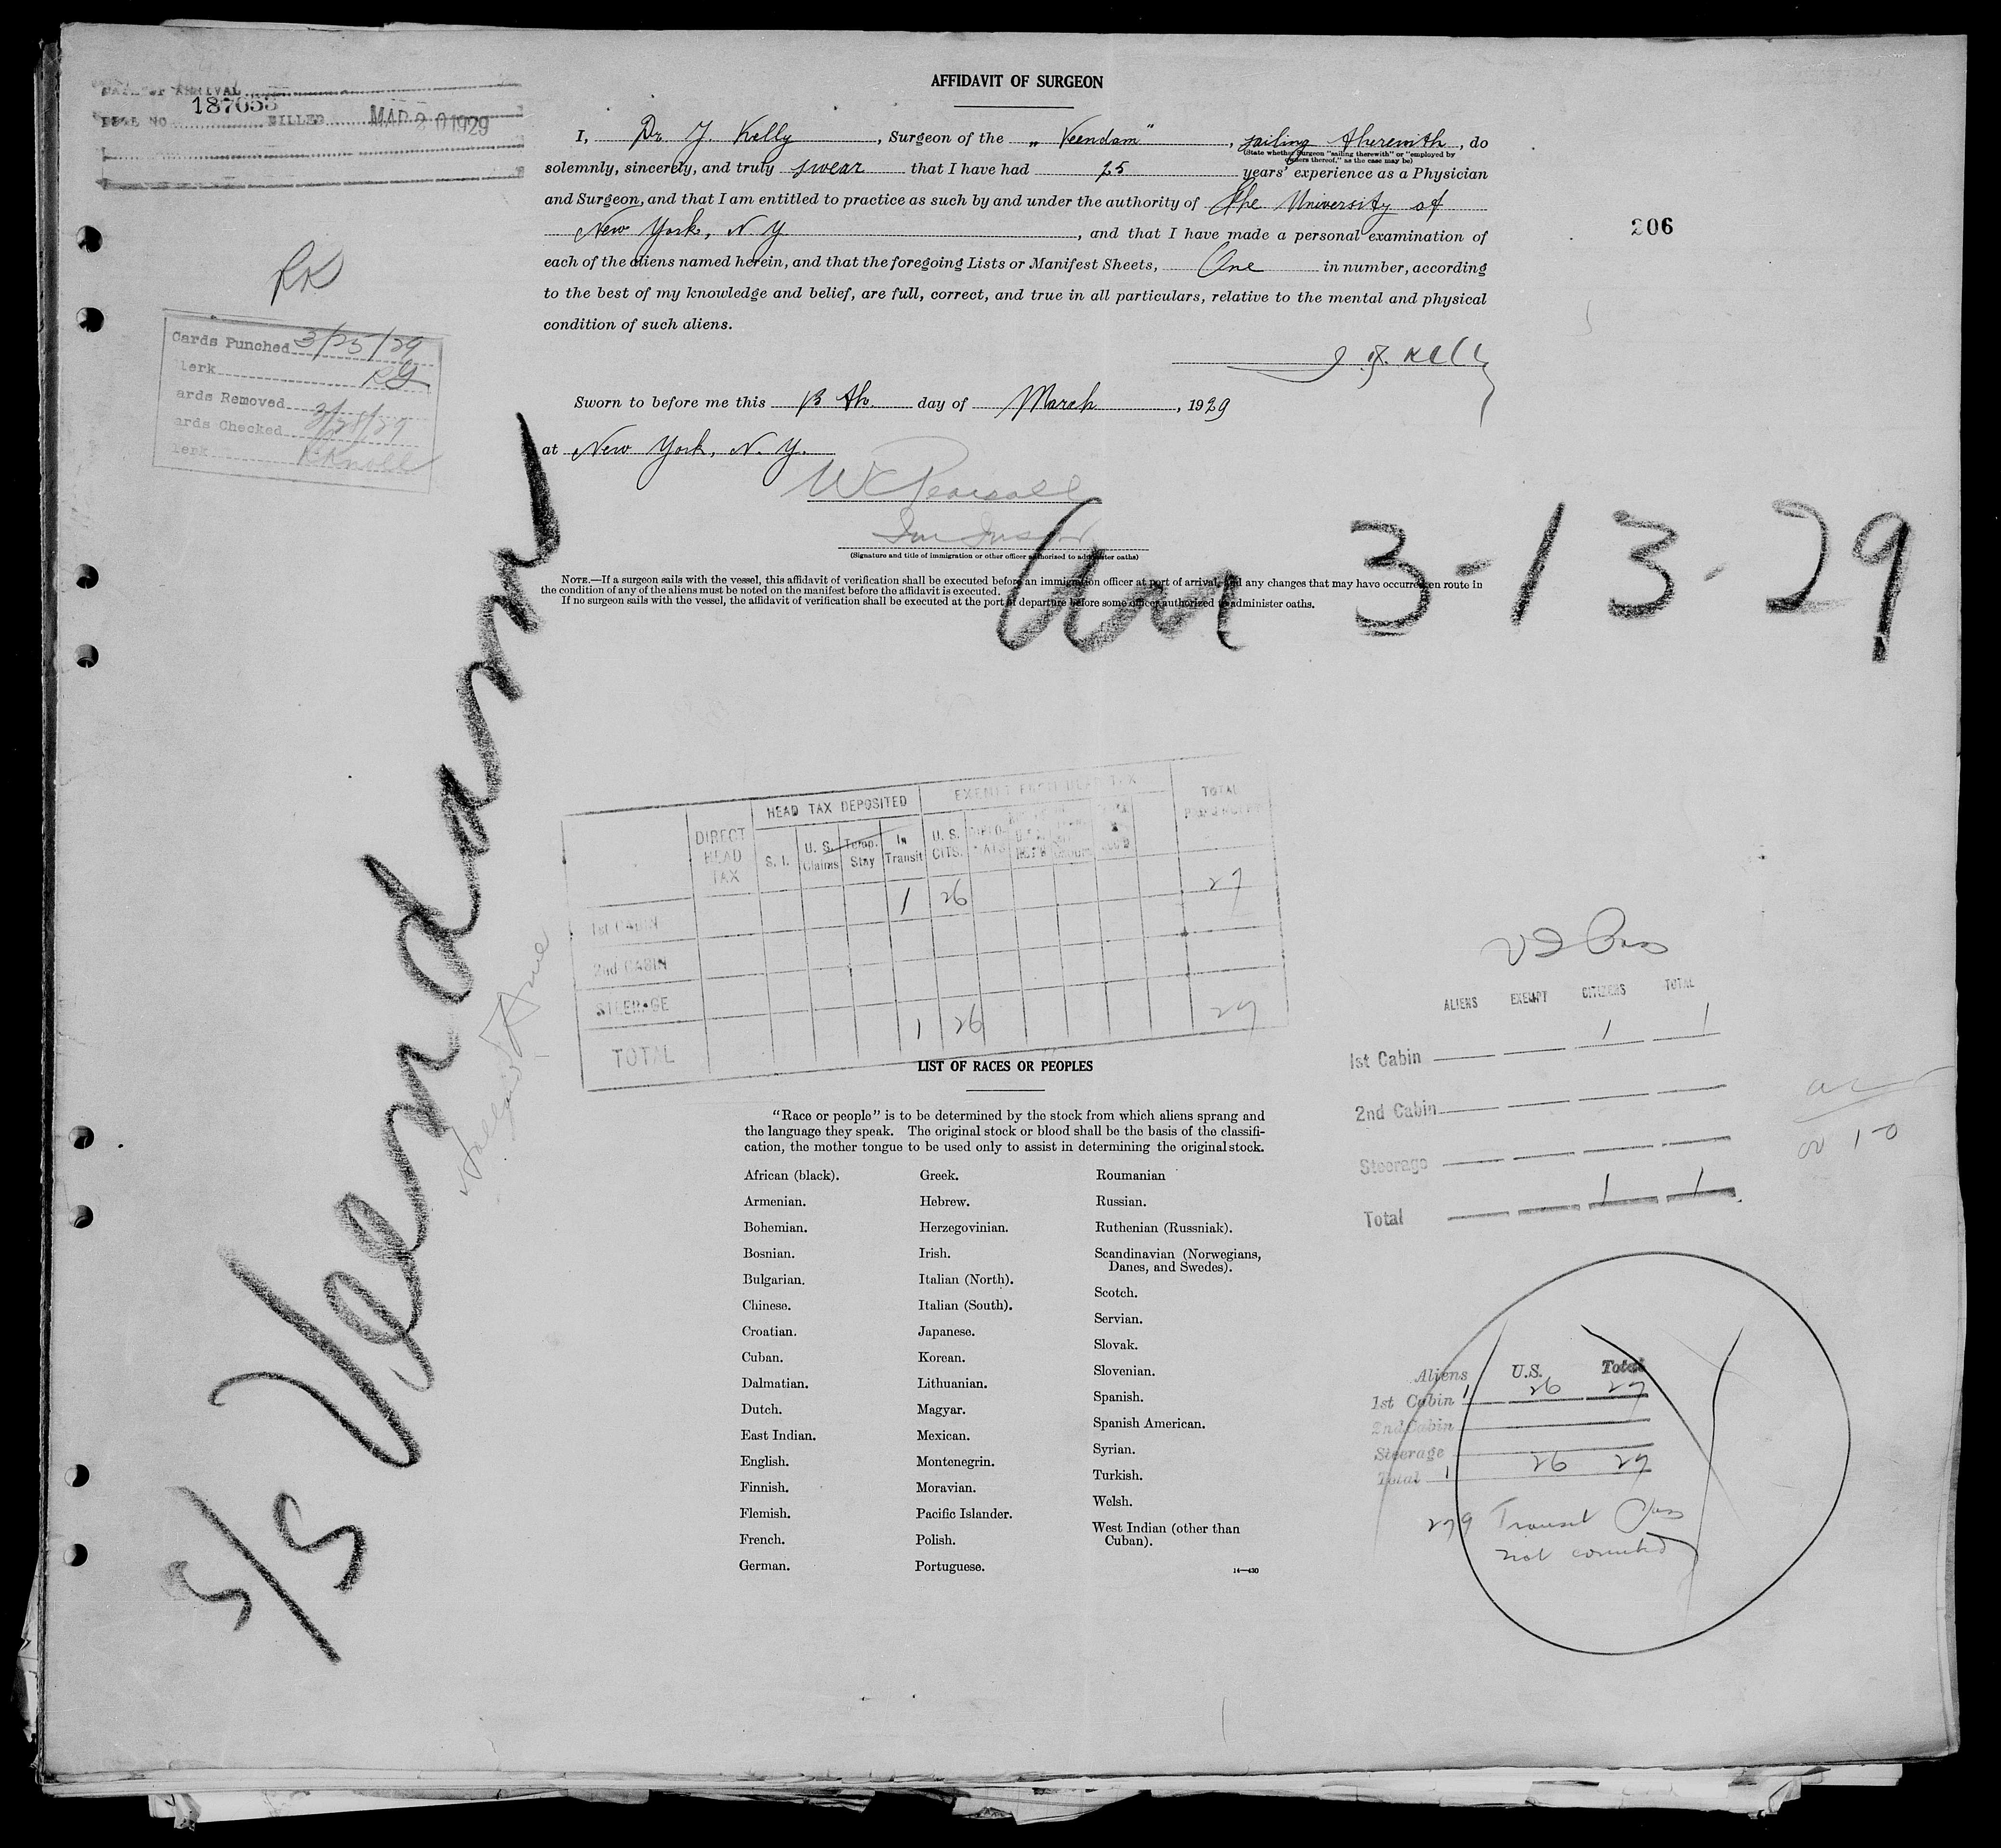 AFFIDAVIT OF SURGEON
DATE OF ARRIVAL
187655
BILLED MAR 20 1929
I, Dr. J. Kelly, Surgeon of the „Veendam", sailing therewith, do
(State whether Surgeon "sailing therewith" or "employed by
owners thereof," as the case may be)
solemnly, sincerely, and truly swear that I have had 25 years' experience as a Physician
and Surgeon, and that I am entitled to practice as such by and under the authority of the University of
New York, N.Y, and that I have made a personal examination of
each of the aliens named herein, and that the foregoing Lists or Manifest Sheets, One in number, according
to the best of my knowledge and belief, are full, correct, and true in all particulars, relative to the mental and physical
condition of such aliens.
206
RK
Cards Punched 3/25/29
lerk RG
ards Removed
ards Checked 3/28/29
lerk
Kelly
Sworn to before me this 13 th. day of March, 1929
at New York, N.Y.
W C Pearsall
(Signature and title of immigration or other officer authorised to administer oaths)
NOTE.—If a surgeon sails with the vessel, this affidavit of verification shall be executed before an immigration officer at port of arrival, and any changes that may have occurred en route in
the condition of any of the aliens must be noted on the manifest before the affidavit is executed.
If no surgeon sails with the vessel, the affidavit of verification shall be executed at the port of departure before some officer authorized to administer oaths.
3-13-29
S/S Veendam
DIRECT HEAD TAX
HEAD TAX DEPOSITED
EXEMPT FROM HEAD TAX
TOTAL
S. I.
U. S. Claims
Temp. Stay
In Transit
U. S. CITS.
1 26 27
1st CABIN
2nd CABIN
STEERAGE
1 26 27
TOTAL
ALIENS EXEMPT CITIZENS TOTAL
1st Cabin 1 1
2nd Cabin
Steerage
Total 1 1
LIST OF RACES OR PEOPLES
"Race or people" is to be determined by the stock from which aliens sprang and
the language they speak. The original stock or blood shall be the basis of the classifi-
cation, the mother tongue to be used only to assist in determining the original stock.
African (black).
Armenian.
Bohemian.
Bosnian.
Bulgarian.
Chinese.
Croatian.
Cuban.
Dalmatian.
Dutch.
East Indian.
English.
Finnish.
Flemish.
French.
German.
Greek.
Hebrew.
Herzegovinian.
Irish.
Italian (North).
Italian (South).
Japanese.
Korean.
Lithuanian.
Magyar.
Mexican.
Montenegrin.
Moravian.
Pacific Islander.
Polish.
Portuguese.
Roumanian
Russian.
Ruthenian (Russniak).
Scandinavian (Norwegians,
Danes, and Swedes).
Scotch.
Servian.
Slovak.
Slovenian.
Spanish.
Spanish American.
Syrian.
Turkish.
Welsh.
West Indian (other than
Cuban).
14—430
Aliens U.S. Total
1st Cabin 1 26 27
2nd Cabin
Steerage
Total 1 26 27
279 Transit Pass
not counted